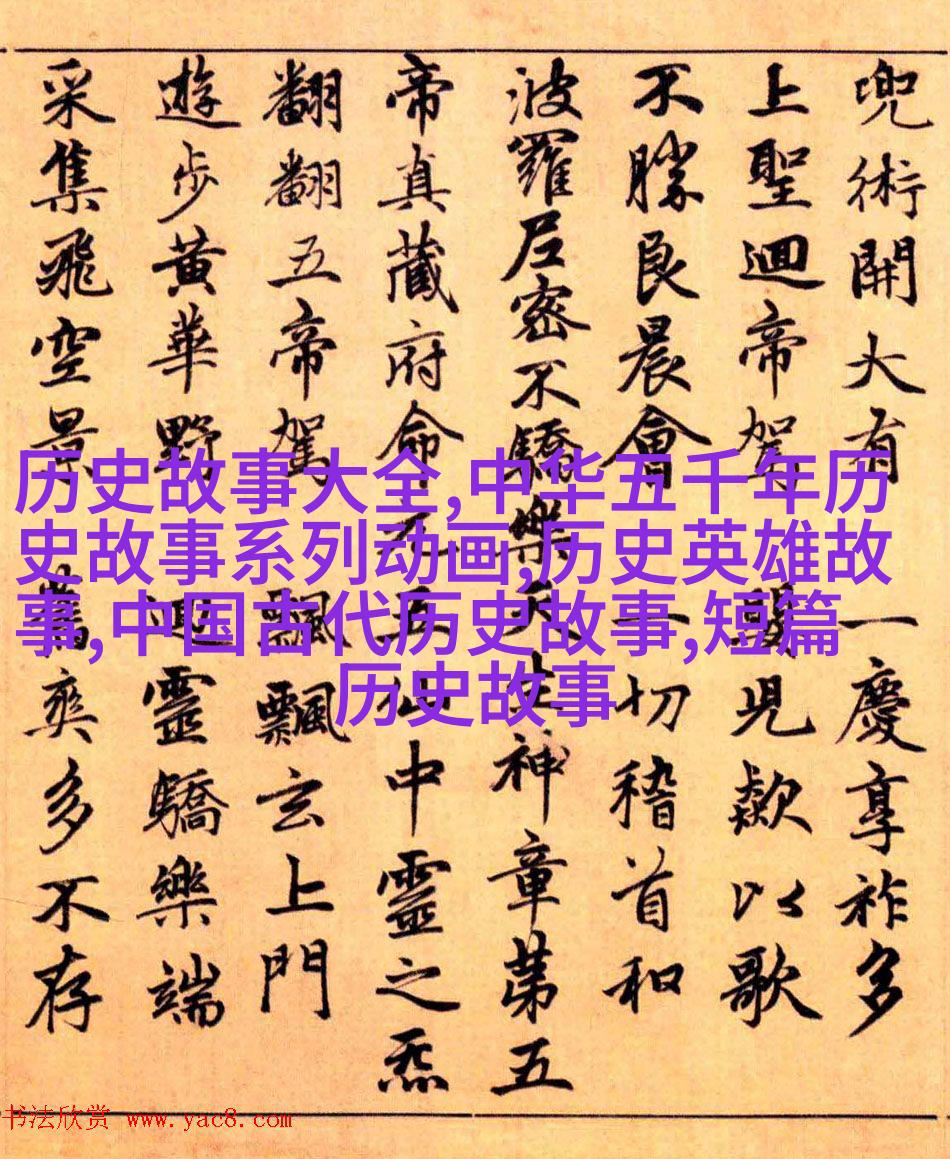 兜術開大有一慶享祚多
上聖迴帝駕兒欵以歌
不勝良晨會一切稽首和
波羅尼密不驕樂天生神章第五
帝真藏府命元五仙中靈之炁
翻翻五帝駕飄飄玄上門
遊步黃華野迴靈驕樂端
采集飛空景爽多不存
历史故事大全,中华五千年历
史故事系列动画,历史英雄故
事,中国古代历史故事,短篇
历史故事
书法欣赏 www.yac8.com